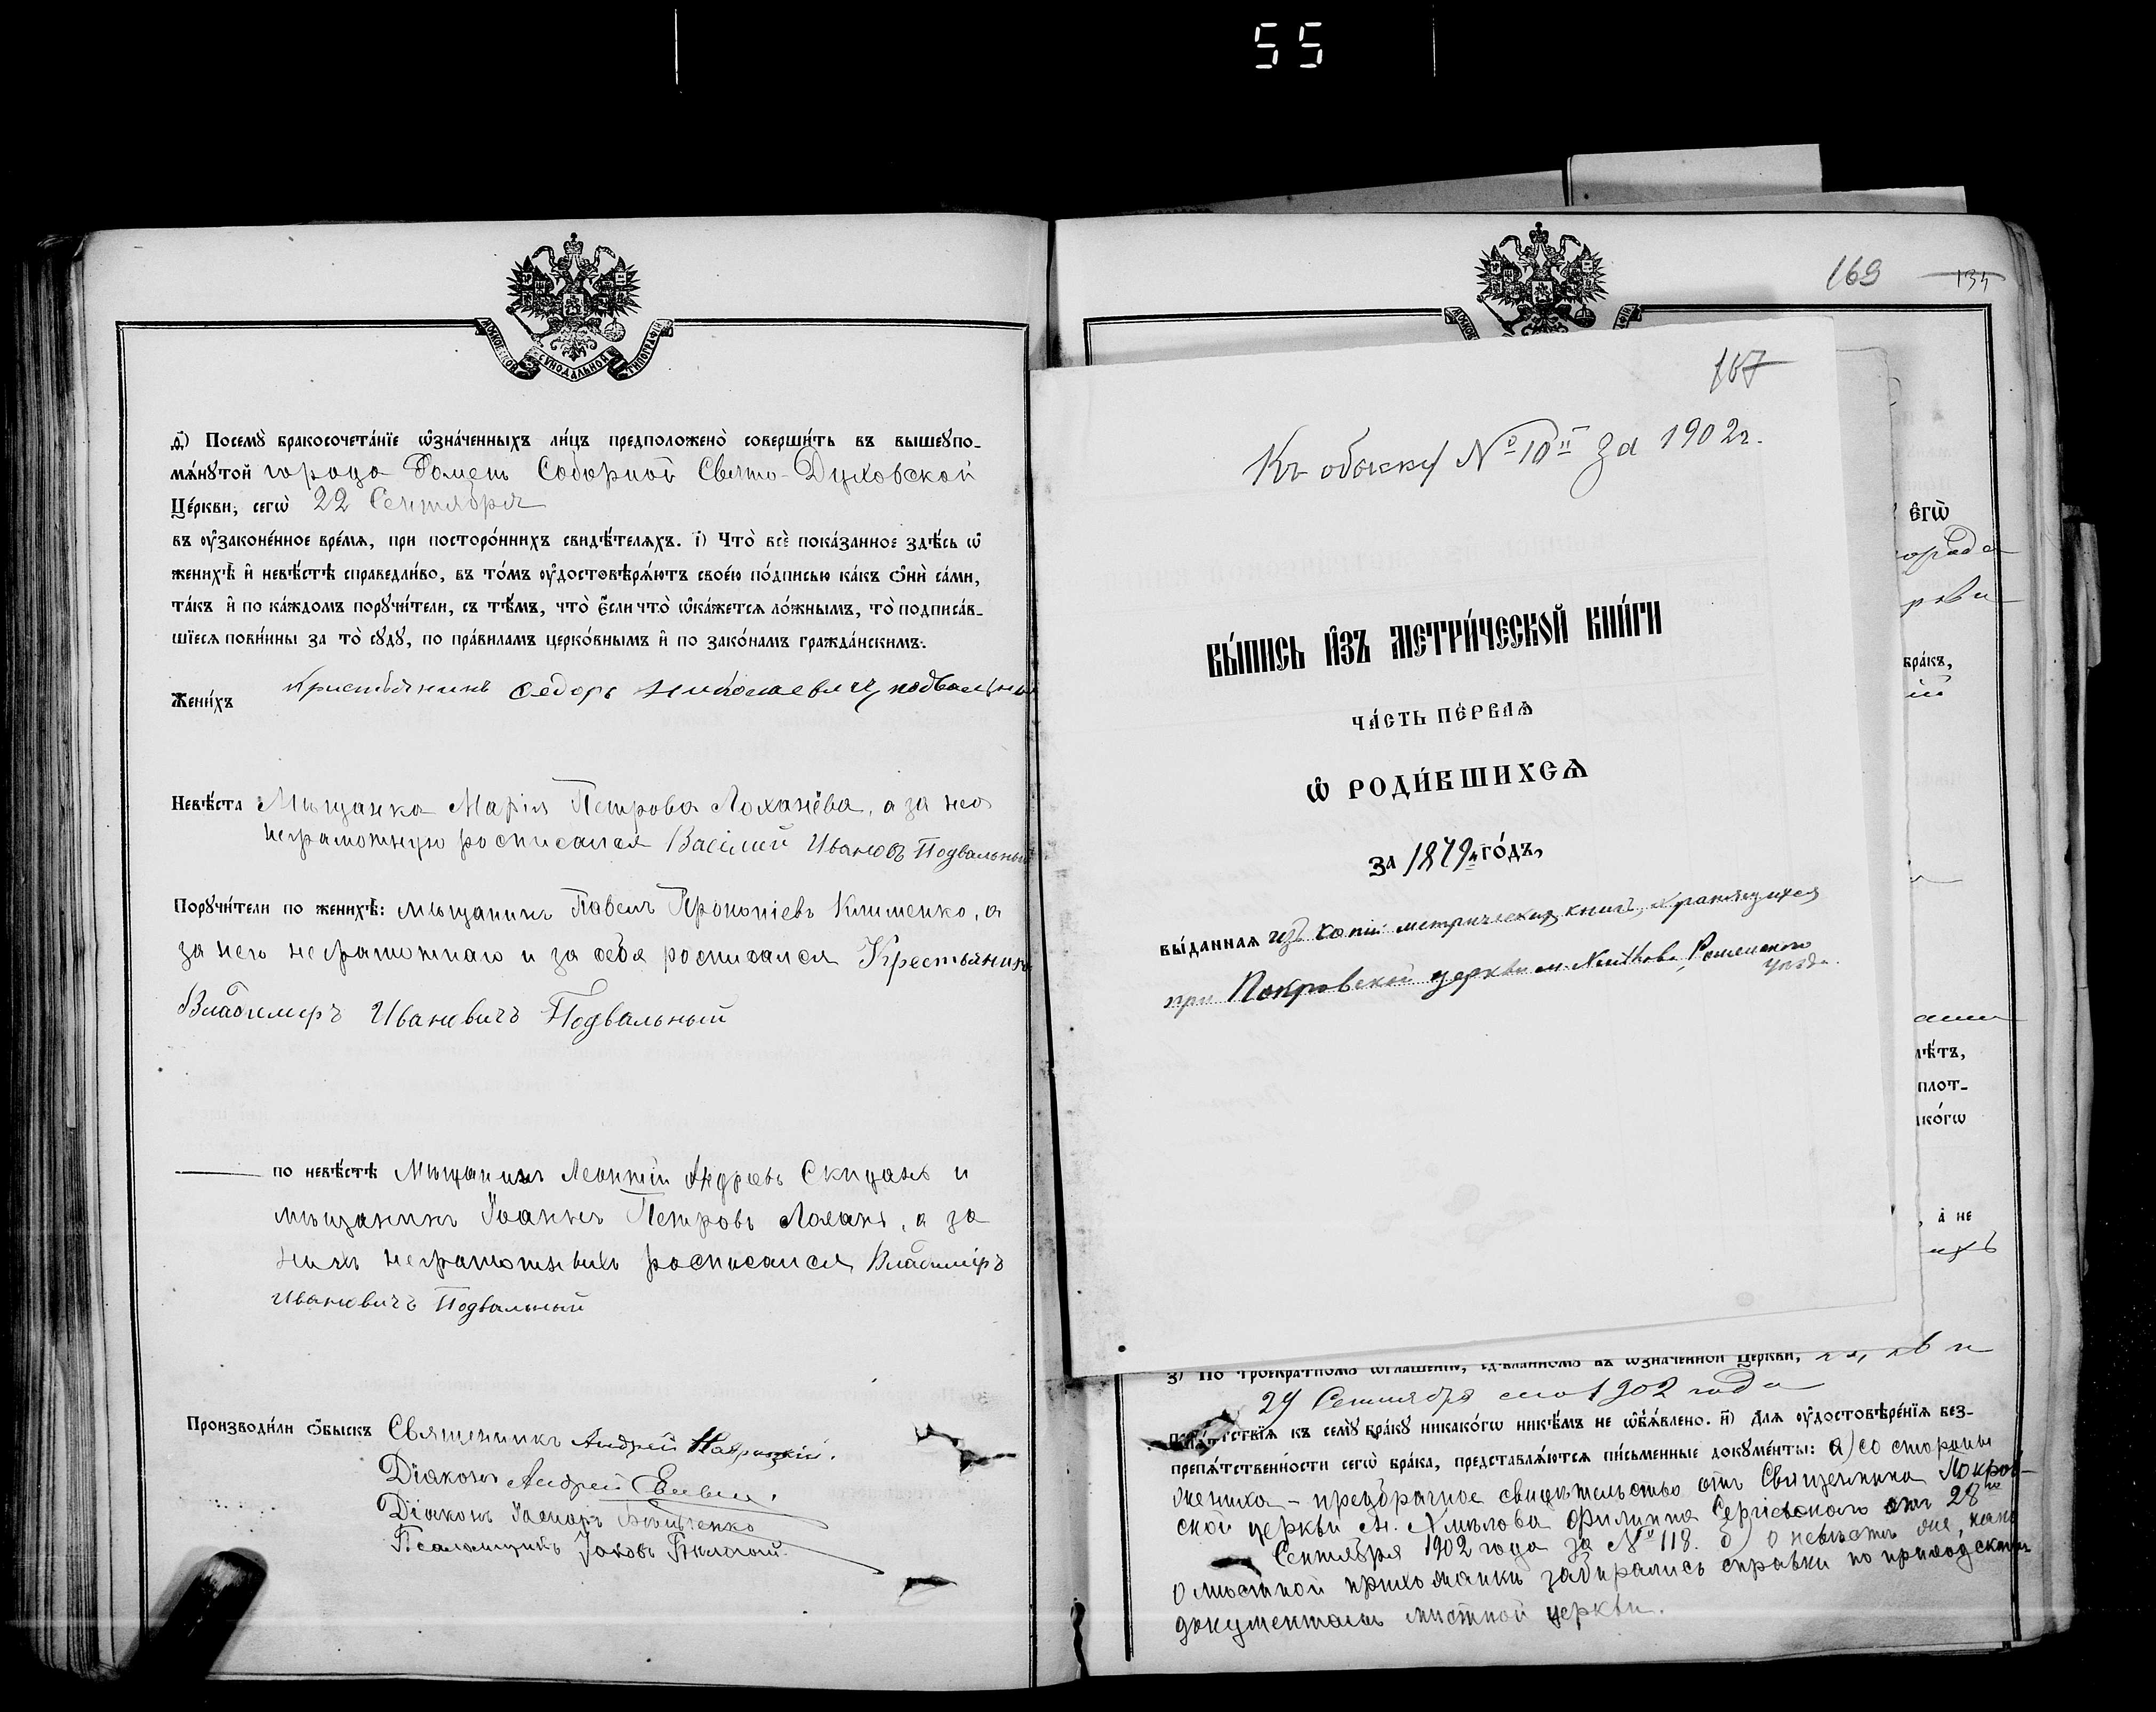 55
МОСКОВСКОЙ СѴНОДАЛЬНОЙ ТИПОГРАФІИ
д҃) Посемꙋ̀ бракосочета́нїе ѡ҆зна́ченныхъ ли́цъ предположено̀ соверши́ть въ вышеꙋпо-
мѧ́нꙋтой города Ромен Соборной Свято-Духовской
Це́ркви, сегѡ̀ 22 Сентября
въ ᲂу҆законе́нное вре́мѧ, при посторо́ннихъ свидѣ́телѧхъ. і҃) Что̀ всѐ пока́занное здѣ́сь ѡ҆
женихѣ̀ и҆ невѣ́стѣ справедли́во, въ то́мъ ᲂу҆достовѣрѧ́ютъ свое́ю по́дписью ка́къ ѻ҆нѝ са́ми,
та́къ и҆ по ка́ждомъ порꙋчи́тели, съ тѣ́мъ, что̀ є҆́сли что̀ ѡ҆ка́жетсѧ ло́жнымъ, то̀ подписа́в-
шїесѧ пови́нны за то̀ сꙋдꙋ̀, по пра́виламъ церко́внымъ и҆ по зако́намъ гражда́нскимъ.
Жени́хъ Кристьянинъ Федоръ подвальный
Невѣ́ста Мѣщанка Марія Петрова Лоханёва, а за нею
неграмотную росписался Василий Ивановъ Подвальный
Порꙋчи́тели по женихѣ̀: мѣщанинъ Павелъ Прокопіевъ Клименко, а
за него неграмотнаго и за себя росписался Крестьянинъ
Владимеръ Ивановичъ Подвальный
по невѣ́стѣ Мѣщанинъ Леонтій Скиданъ и
мѣщанинъ Іоаннъ Петровъ Лохань, а за
нихъ неграмотныхъ росписался Владимиръ
Ивановичъ Подвальный
Производи́ли ѻ҆́быскъ Священникъ Андрей
Діаконъ Андрей
Діаконъ
Псаломщикъ Іаковъ
169 134
167
Къ обыску № 10й За 1902г.
ВЫ́ПИСЬ И҆ЗЪ МЕТРИ́ЧЕСКОЙ КНИ́ГИ
ЧА́СТЬ ПЕ́РВАѦ
Ѡ҆ РОДИ́ВШИХСѦ
за 1879й го́дъ,
вы́даннаѧ изъ копіи метрическихъ книгъ, хранящихся
при Покровской церкви м. Роменскаго
уѣзда.
є҆гѡ̀
города
бра́къ,
лѣ́тъ,
плот-
ико́гѡ
, а҆ не
ихъ
з҃) По троекра́тномъ ѡ҆глаше́нїю, сдѣ́ланномъ въ ѡ҆зна́ченной Це́ркви,
29 Сентября сего 1902 года
препѧ́тствїѧ къ семꙋ̀ бра́кꙋ никако́гѡ никѣ́мъ не ѡ҆б̾ѧ́влено. и҃) Длѧ ᲂу҆достовѣре́нїѧ без-
препѧ́тственности сегѡ̀ бра́ка, представлѧ́ютсѧ пи́сьменные докꙋме́нты: а) со стороны
жениха – предбрачное свидѣтельство отъ Священника Покров-
ской церкви м. Хмѣлова Филиппа Сергіевскаго отъ 28го
Сентября 1902 года за № 118. б) о невѣстѣ же, какъ
о мѣстной прихожанки забирались справки по приходскимъ
документамъ мѣстной церкви.